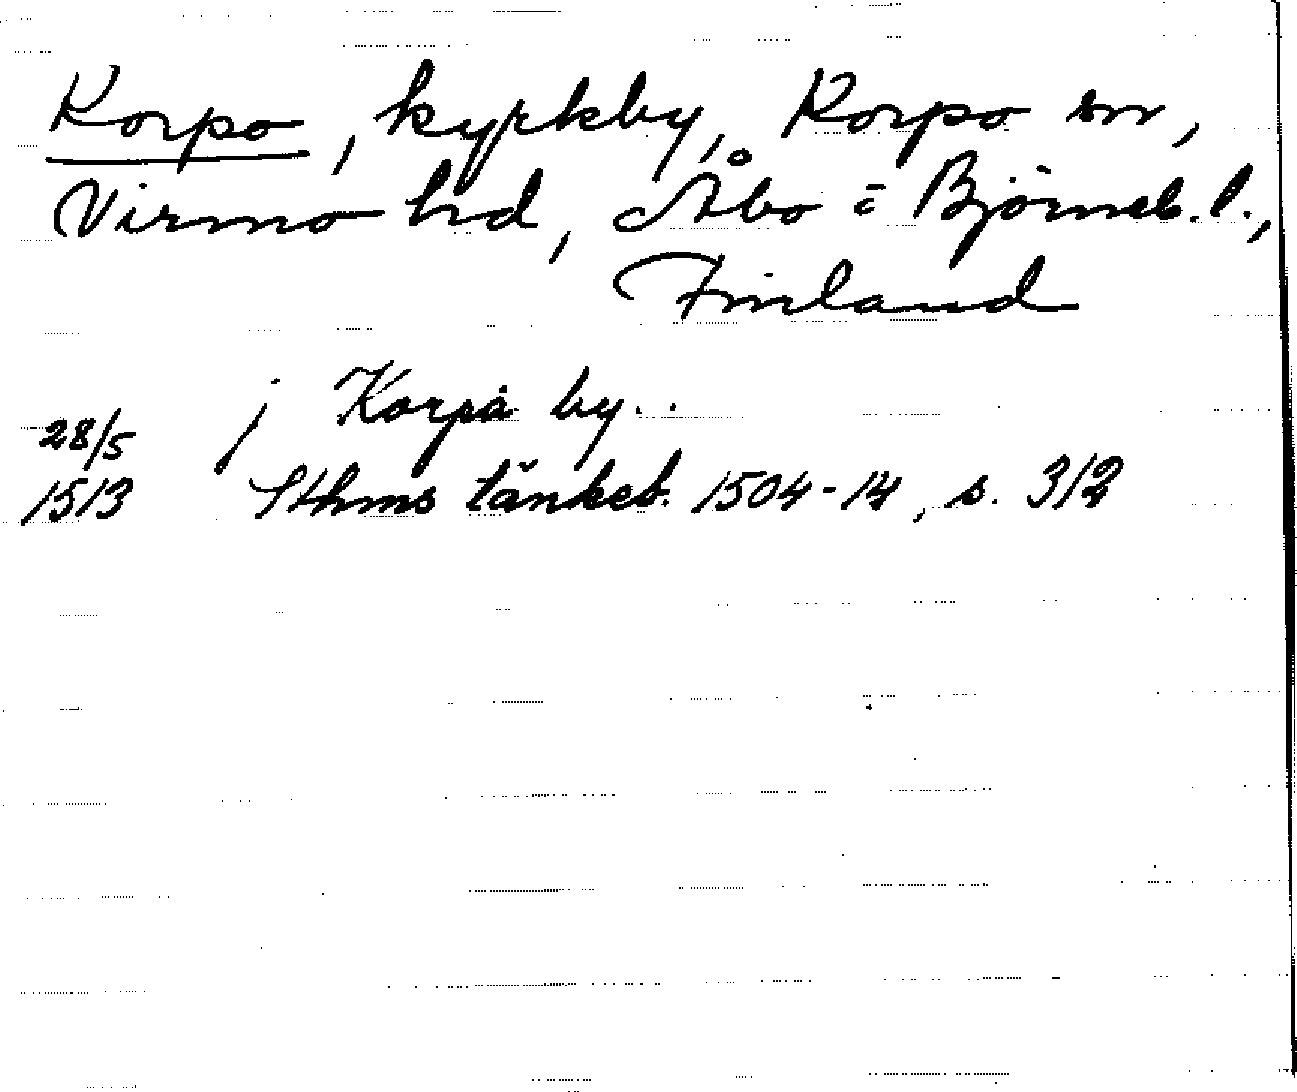 Korpo, kyrkby, Korpo sn,
Virmo hd, Åbo = Björneb. l.,
Finland
j Korpå by..
28/5
1513 Sthms tänkeb. 1504-14, s. 312